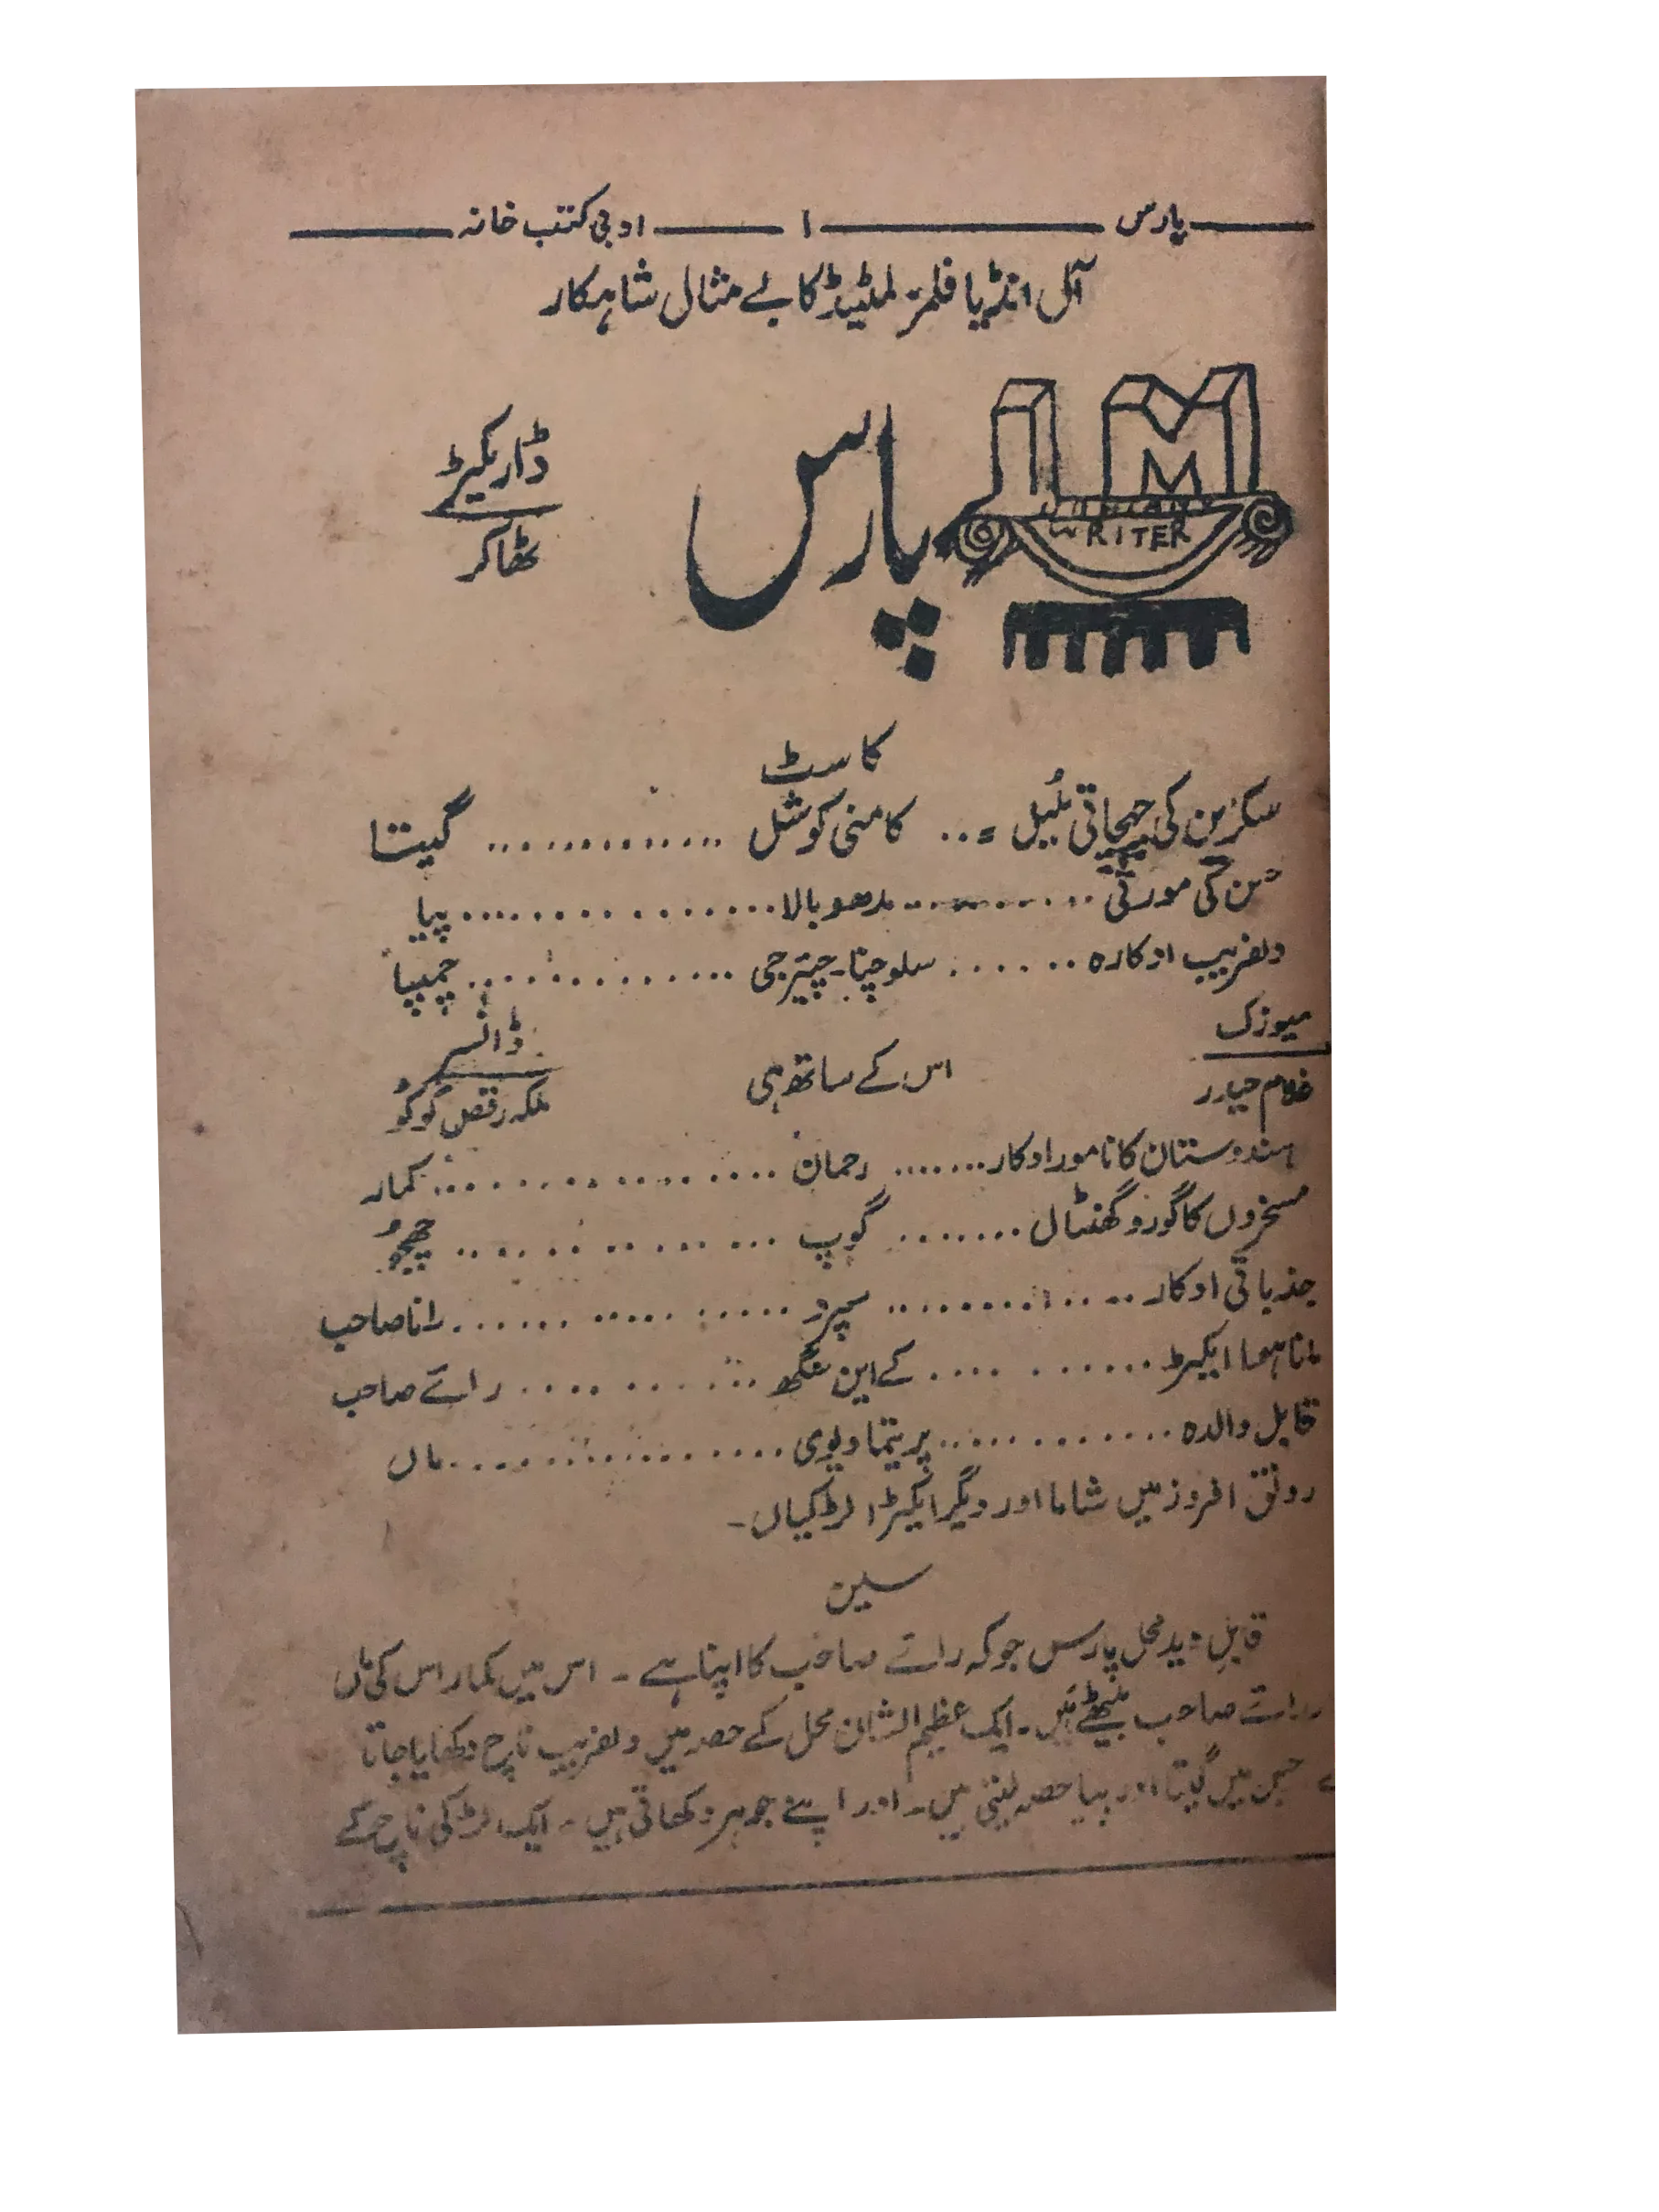 پارس ۱ ادبی کتب خانہ
آل انڈیا فلمز لمٹیڈ کا بے مثال شاہکار
M
M
WRITER
پارس
ڈاریکٹر
ٹھاکر
کاسٹ
سکرین کی چہچہاتی بُلبل = .. کامنی کوشل .............. گیتا
حسن کی مورتی .............. مدھوبالا .................. پیا
دلفریب اداکارہ ...... سلوچنا چیٹرجی .............. چمپا
میوزک
غلام حیدر
اس کے ساتھ ہی
ڈانسر
ملکہ رقص کوکُو
ہندوستان کا نامور اداکار ....... رحمان .................. کمار
مسخروں کا گورو گھنٹال ....... گوپ .................. چھجُو
جذباتی اداکار .............. سپرو .................. رانا صاحب
مانا ہوا ایکٹر .......... کے این سنگھ .............. رائے صاحب
قابل والدہ .............. پریتما دیوی .................. ماں
رونق افروز میں شاما اور دیگر ایکٹرا لڑکیاں ۔
سین
قابلِ دید محل پارس جو کہ رائے صاحب کا اپنا ہے ۔ اس میں کمار اس کی ماں
رائے صاحب بیٹھے ہیں ۔ ایک عظیم الشان محل کے حصہ میں دلفریب ناچ دکھایا جاتا
جس میں گیتا اور پیا حصہ لیتی ہیں ۔ اور اپنے جوہر دکھاتی ہیں ۔ ایک لڑکی ناچ کے